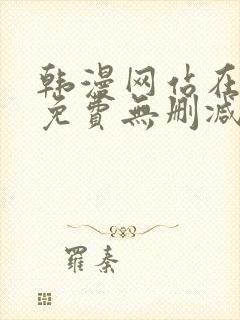 韩漫网站在
免費無删减
羅秦